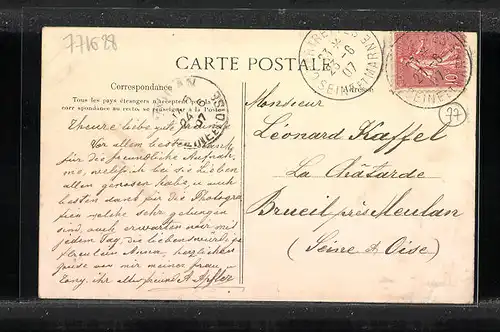 771628
CARTE POSTALE
Correspondance
Tous les pays étrangers n'acceptent pas la
cor spondance au recto. se renseigner à la Poste
Adresse
23-6
07
Theure liebe gute Freunde
Vor allem besten Dank
für die freundliche Aufnah-
me, welche ich bei sie Lieben
allen genossen habe, u auch
besten dank für die Photogra-
fien welche sehr gelungen
sind, auch erwarten wir mit
jedem Tag, die liebenswürdige
Anna, herzlichen
von mir meiner frau
ihr alter freund A
Monsieur
Léonard Kaffel
La Châtarde
Brueil près Meulan
(Seine & Oise)
27